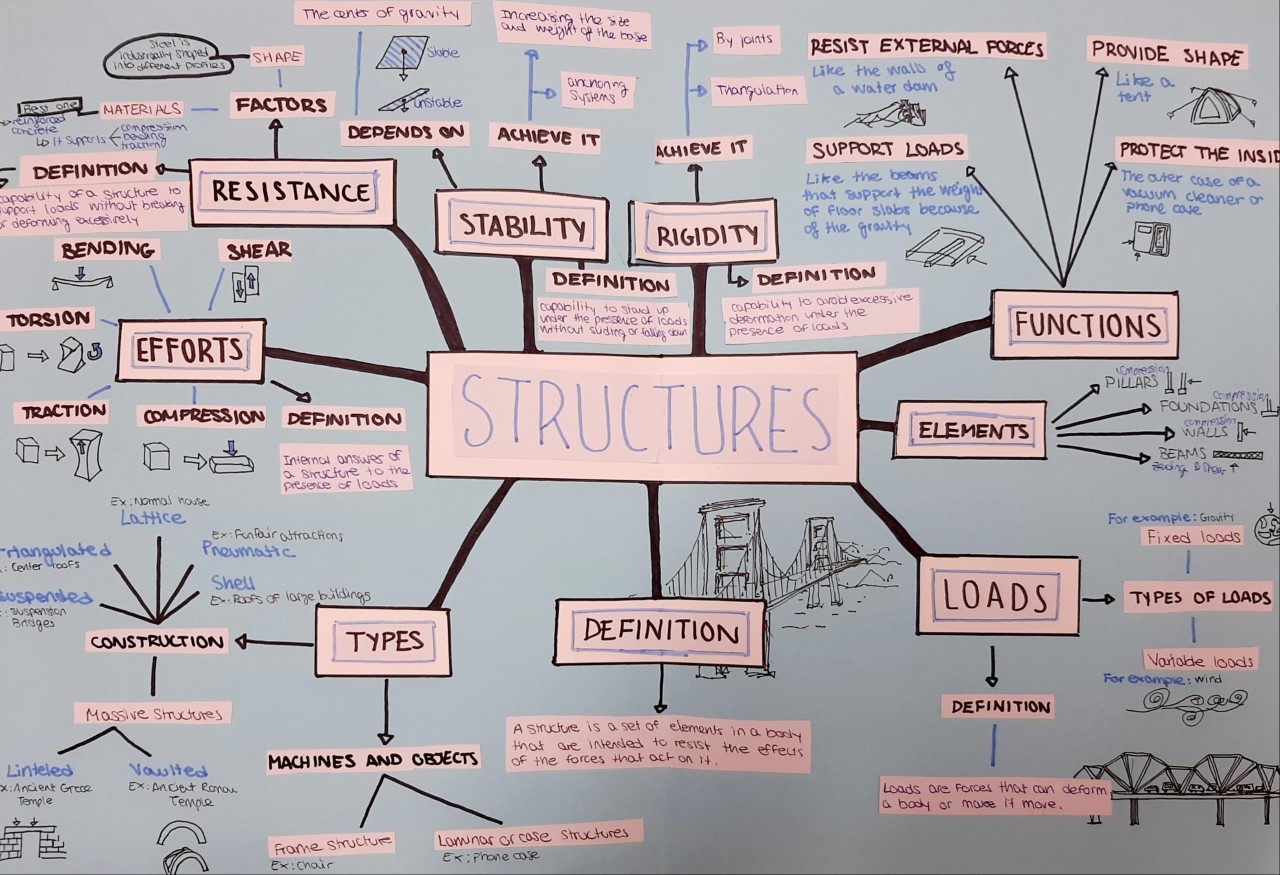 The center of gravity
Stable
unstable
DEPENDS ON
Increasing the size
and weight of the base
anchoring
systems
ACHIEVE IT
STABILITY
DEFINITION
capability to stand up
under the presence of loads
without sliding or falling down
By joints
Triangulation
ACHIEVE IT
RIGIDITY
DEFINITION
capability to avoid excessive
deformation under the
presence of loads
Steel is
industrially shaped
into different profiles
SHAPE
Best one
MATERIALS
reinforced
concrete
It supports
compression
bending
traction
FACTORS
DEFINITION
capability of a structure to
support loads without breaking
or deforming excessively
RESISTANCE
RESIST EXTERNAL FORCES
Like the walls of
a water dam
PROVIDE SHAPE
Like a
tent
SUPPORT LOADS
Like the beams
that support the weight
of floor slabs because
of the gravity
PROTECT THE INSID
The outer case of a
vacuum cleaner or
phone case
FUNCTIONS
BENDING
SHEAR
TORSION
EFFORTS
TRACTION
COMPRESSION
DEFINITION
Internal answer of
a structure to the
presence of loads
STRUCTURES
ELEMENTS
compression
PILLARS
compression
FOUNDATIONS
compression
WALLS
BEAMS
Ex: Normal house
Lattice
Ex: Funfair attractions
Pneumatic
riangulated
: Center roofs
Shell
Ex: Roofs of large buildings
uspended
: Suspension
Bridges
CONSTRUCTION
TYPES
Massive structures
Linteled
x: Ancient Greece
Temple
Vaulted
Ex: Ancient Roman
Temple
MACHINES AND OBJECTS
Frame structure
Ex: Chair
Laminar or case structures
Ex: Phone case
DEFINITION
A structure is a set of elements in a body
that are intended to resist the effects
of the forces that act on it.
LOADS
For example: Gravity
Fixed loads
TYPES OF LOADS
Variable loads
For example: wind
DEFINITION
Loads are forces that can deform
a body or make it move.